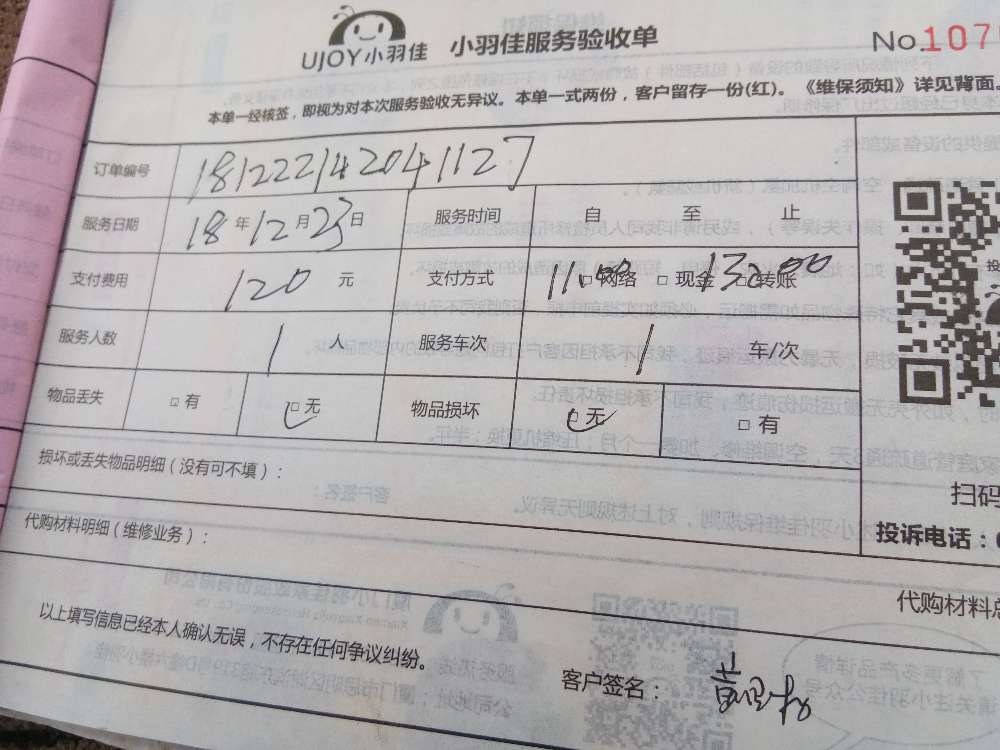 UJOY小羽佳 小羽佳服务验收单 No.107
本单一经核签，即视为对本次服务验收无异议。本单一式两份，客户留存一份(红)。《维保须知》详见背面。
订单编号 181222142041127
服务日期 18年12月23日 服务时间 自 至 止
支付费用 120 元 支付方式 11:00 □网络 □现金 13:00 □转账
服务人数 1 人 服务车次 1 车/次
物品丢失 □有 □无 物品损坏 □无 □有
损坏或丢失物品明细（没有可不填）：
扫码
代购材料明细（维修业务）：
投诉电话：
代购材料总
以上填写信息已经本人确认无误，不存在任何争议纠纷。
客户签名：